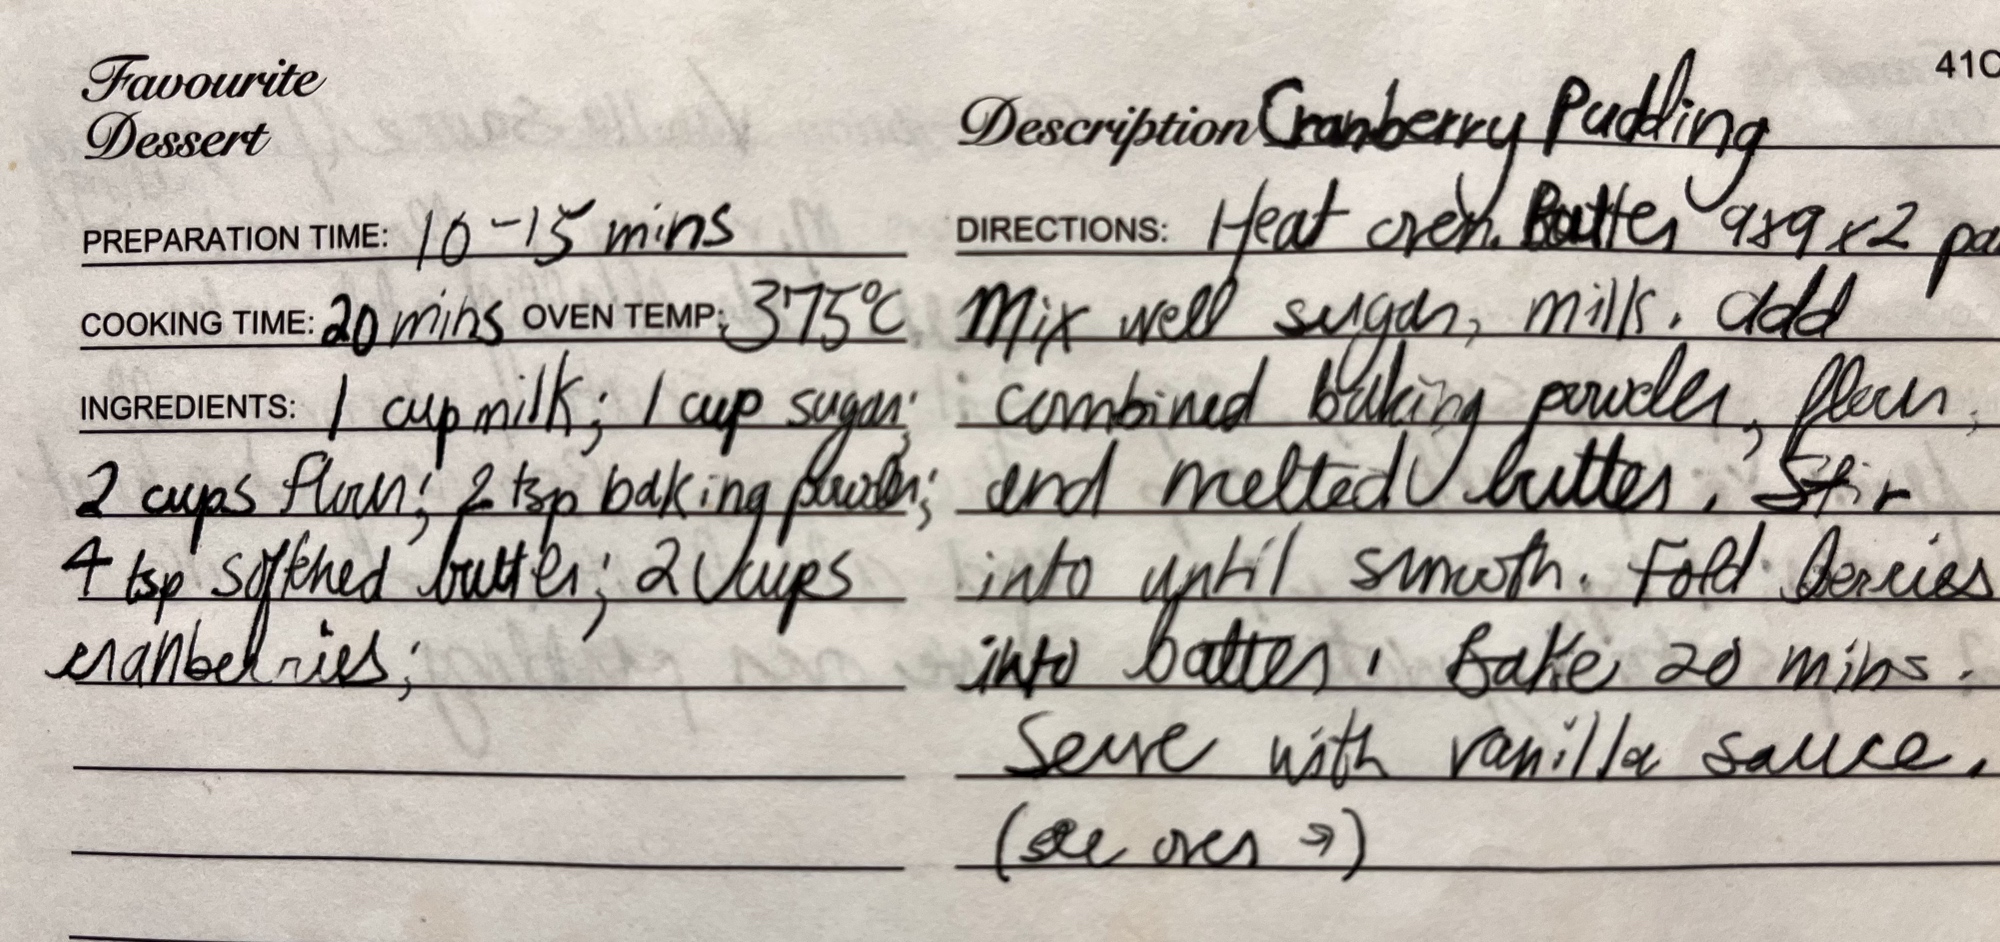 Favourite
Dessert
PREPARATION TIME: 10-15 mins
COOKING TIME: 20 mins OVEN TEMP: 375°C
INGREDIENTS: 1 cup milk; 1 cup sugar;
2 cups flour; 2 tsp baking powder;
4 tsp softned butter; 2 cups
cranberries;
41C
Description Cranberry Pudding
DIRECTIONS: Heat oven. Butter 9x9x2 pa
Mix well sugar, milk. add
combined baking powder, flour,
and melted butter. Stir
into until smooth. Fold berries
into batter. Bake 20 mins.
Serve with vanilla sauce.
(see over →)